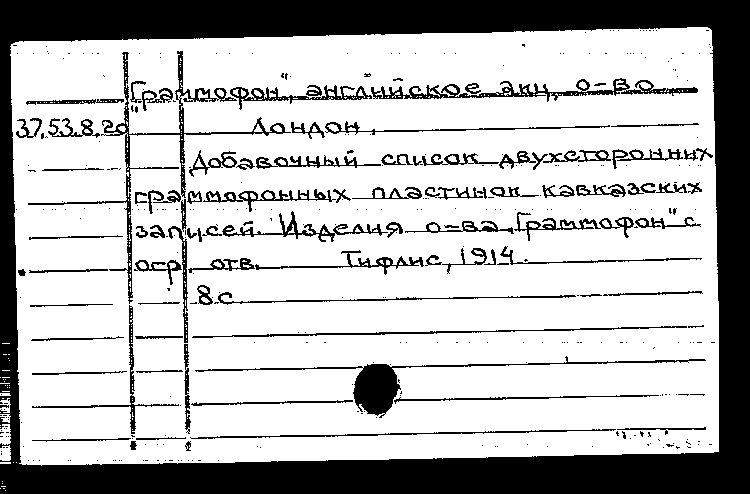 "Граммофон", английское акц. о-во,
37.53.8.20 Лондон,
Добавочный список двухсторонних
граммофонных пластинок кавказских
записей. Изделия о-ва "Граммофон" с
огр. отв. Тифлис, 1914.
8 с